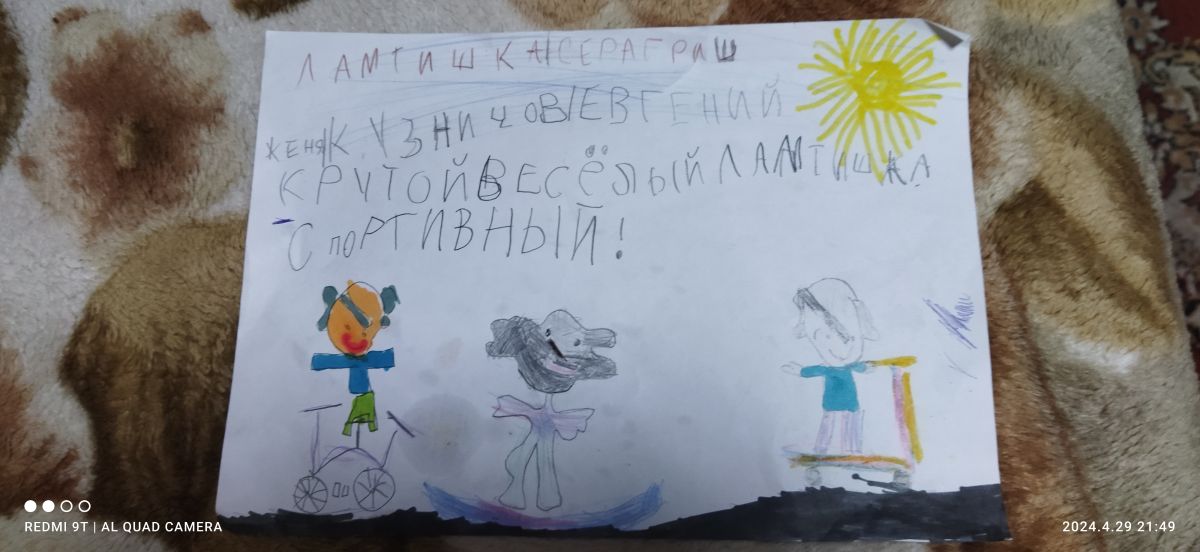 ЛАМТИШКА СЕРАГРИШ
ЖЕНЯ КУЗНИЧОВ ЕВГЕНИЙ
КРУТОЙ ВЕСЁЛЫЙ ЛАМТИШКА
СПОРТИВНЫЙ!
REDMI 9T | AI QUAD CAMERA
2024.4.29 21:49